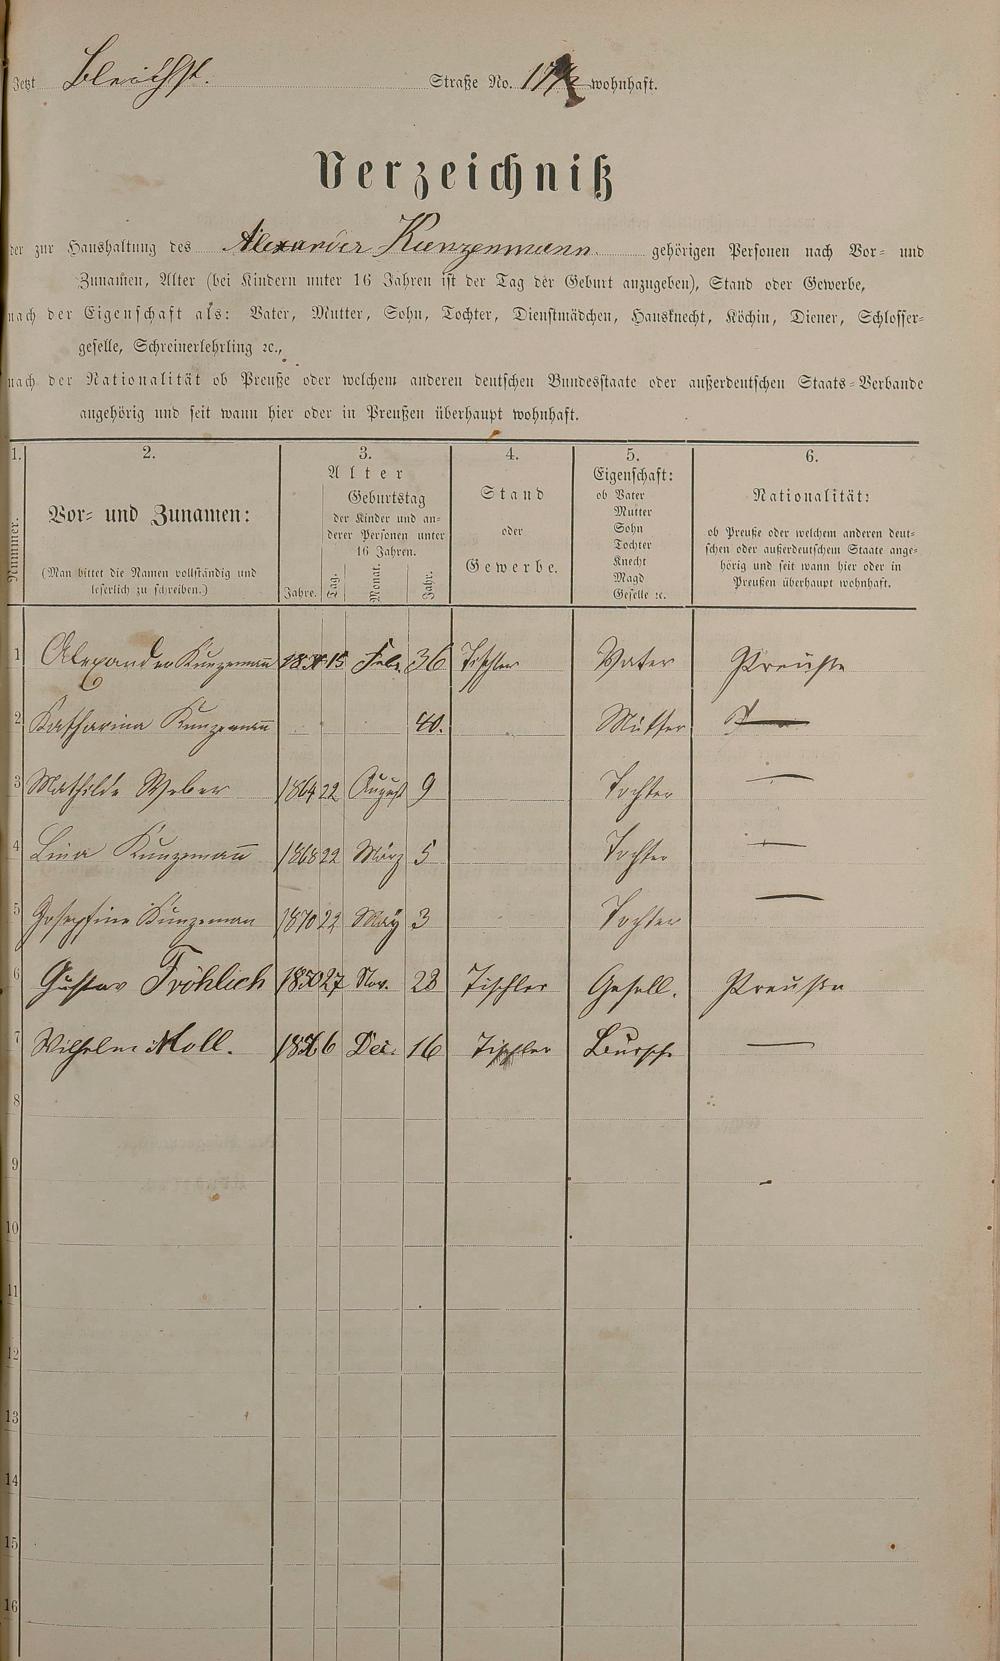 Jetzt Bleichst. Straße No. 17 wohnhaft.
Verzeichniß
der zur Haushaltung des Alexander Kunzenmann. gehörigen Personen nach Vor- und
Zunamen, Alter (bei Kindern unter 16 Jahren ist der Tag der Geburt anzugeben), Stand oder Gewerbe,
nach der Eigenschaft als: Vater, Mutter, Sohn, Tochter, Dienstmädchen, Hausknecht, Köchin, Diener, Schlosser-
geselle, Schreinerlehrling ꝛc.,
nach der Nationalität ob Preuße oder welchem anderen deutschen Bundesstaate oder außerdeutschen Staats-Verbande
angehörig und seit wann hier oder in Preußen überhaupt wohnhaft.
1. 2. 3. 4. 5. 6.
Nummer.
Vor- und Zunamen:
(Man bittet die Namen vollständig und
leserlich zu schreiben.)
Alter
Geburtstag
der Kinder und an-
derer Personen unter
16 Jahren.
Jahre. Tag. Monat. Jahr.
Stand
oder
Gewerbe.
Eigenschaft:
ob Vater
Mutter
Sohn
Tochter
Knecht
Magd
Geselle ꝛc.
Nationalität:
ob Preuße oder welchem anderen deut-
schen oder außerdeutschem Staate ange-
hörig und seit wann hier oder in
Preußen überhaupt wohnhaft.
1 Alexander Kunzemann 15 Feb. 36 Tischler Vater Preuße
2 Katharina Kunzemann 40. Mutter
3 Mathilde Weber 1864 22 August 9 Tochter —
4 Lina Kunzemann 1868 22 März 5 Tochter —
5 Josephine Kunzeman 1870 22 May 3 Tochter —
6 Gustav Fröhlich 1850 27 Nov. 23 Tischler Gesell. Preuße
7 Wilhelm Moll. 6 Dec. 16 Tischler Bursche —
8
9
10
11
12
13
14
15
16